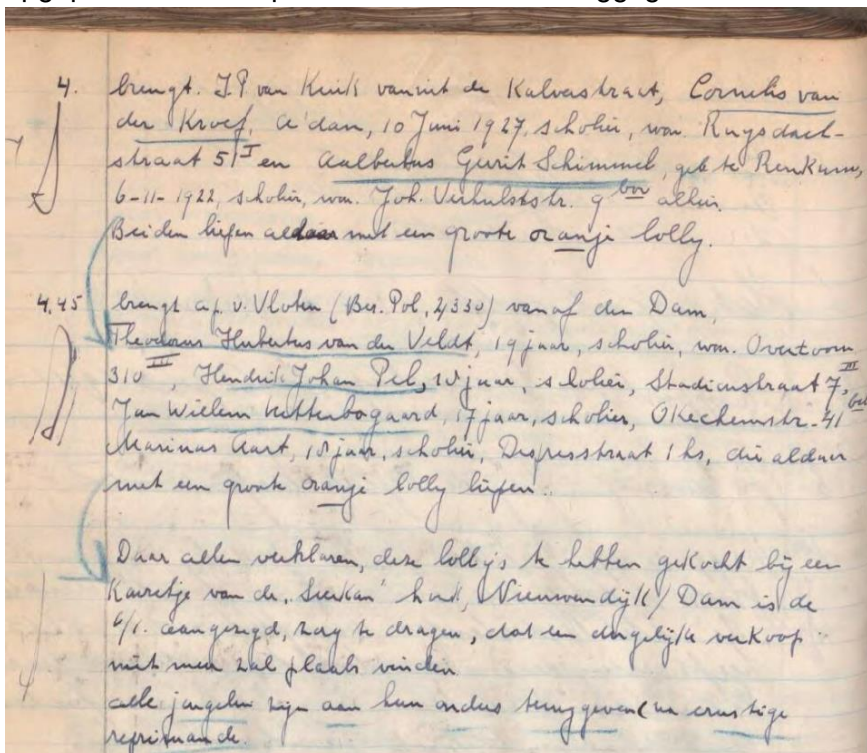 4. brengt. J.P van Kuik vanuit de Kalverstraat, Cornelis van
der Kroef, A'dam, 10 Juni 1927, scholier, won. Ruysdael-
straat 51 I en Aalbertus Gerrit Schimmel, geb te Renkum,
6-11-1922, scholier, won. Joh. Verhulststr. 9 bov allen.
Beiden liepen aldaar met een groote oranje lolly.
4.45 brengt a.p. v. Vloten (Ber. Pol, 2/330) vanaf den Dam,
Theodorus Hubertus van der Veldt, 19 jaar, scholier, won. Overtoom
310 III, Hendrik Johan Pel, 18 jaar, scholier, Stadionstraat 7 III,
Jan Willem Uittenbogaard, 17 jaar, scholier, Okeghemstr. 41
Marinus Aart, 18 jaar, scholier, Depresstraat 1 hs, die aldaar
met een groote oranje lolly liepen.
Daar allen verklaren, deze lolly's te hebben gekocht bij een
karretje van de hoek, Nieuwendijk/Dam is de
aangezegd, zorg te dragen, dat een dergelijke verkoop
niet meer zal plaats vinden
alle jongelui zijn aan hun ouders teruggeven (na ernstige
reprimande.